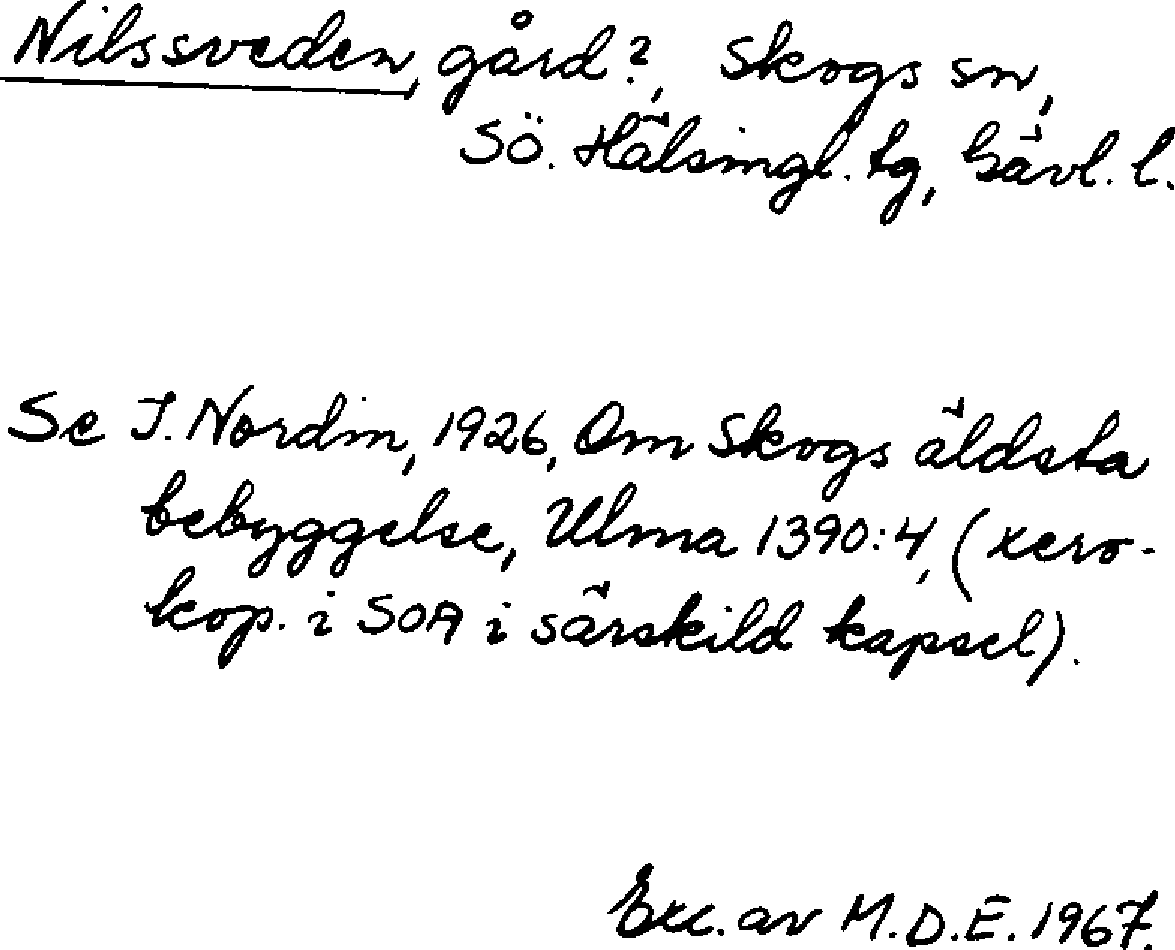 Nilssveden, gård?, Skogs sn,
SÖ. Hälsingl. tg, Gävl. l.
Se J. Nordin, 1926, Om Skogs äldsta
bebyggelse, Ulma 1390:4, (xero-
kop. i SOA i särskild kapsel).
Exc. av M.D.E. 1967.